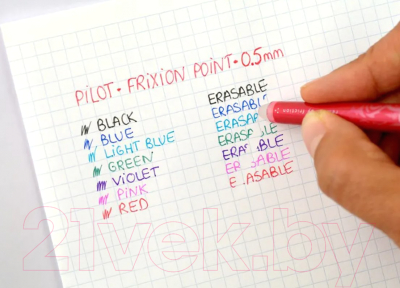 PILOT · FRIXION POINT · 0.5mm
BLACK ERASABLE
BLUE ERASABLE
LIGHT BLUE ERASABLE
GREEN ERASABLE
VIOLET ERASABLE
PINK ERASABLE
RED ERASABLE
21vek.by